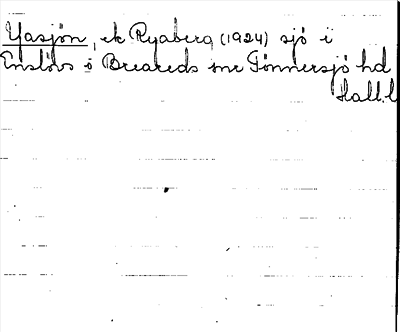 Yasjön, ek Ryaberg (1924) sjö i
Enslövs o Breareds snr Tönnersjö hd
Hall. l